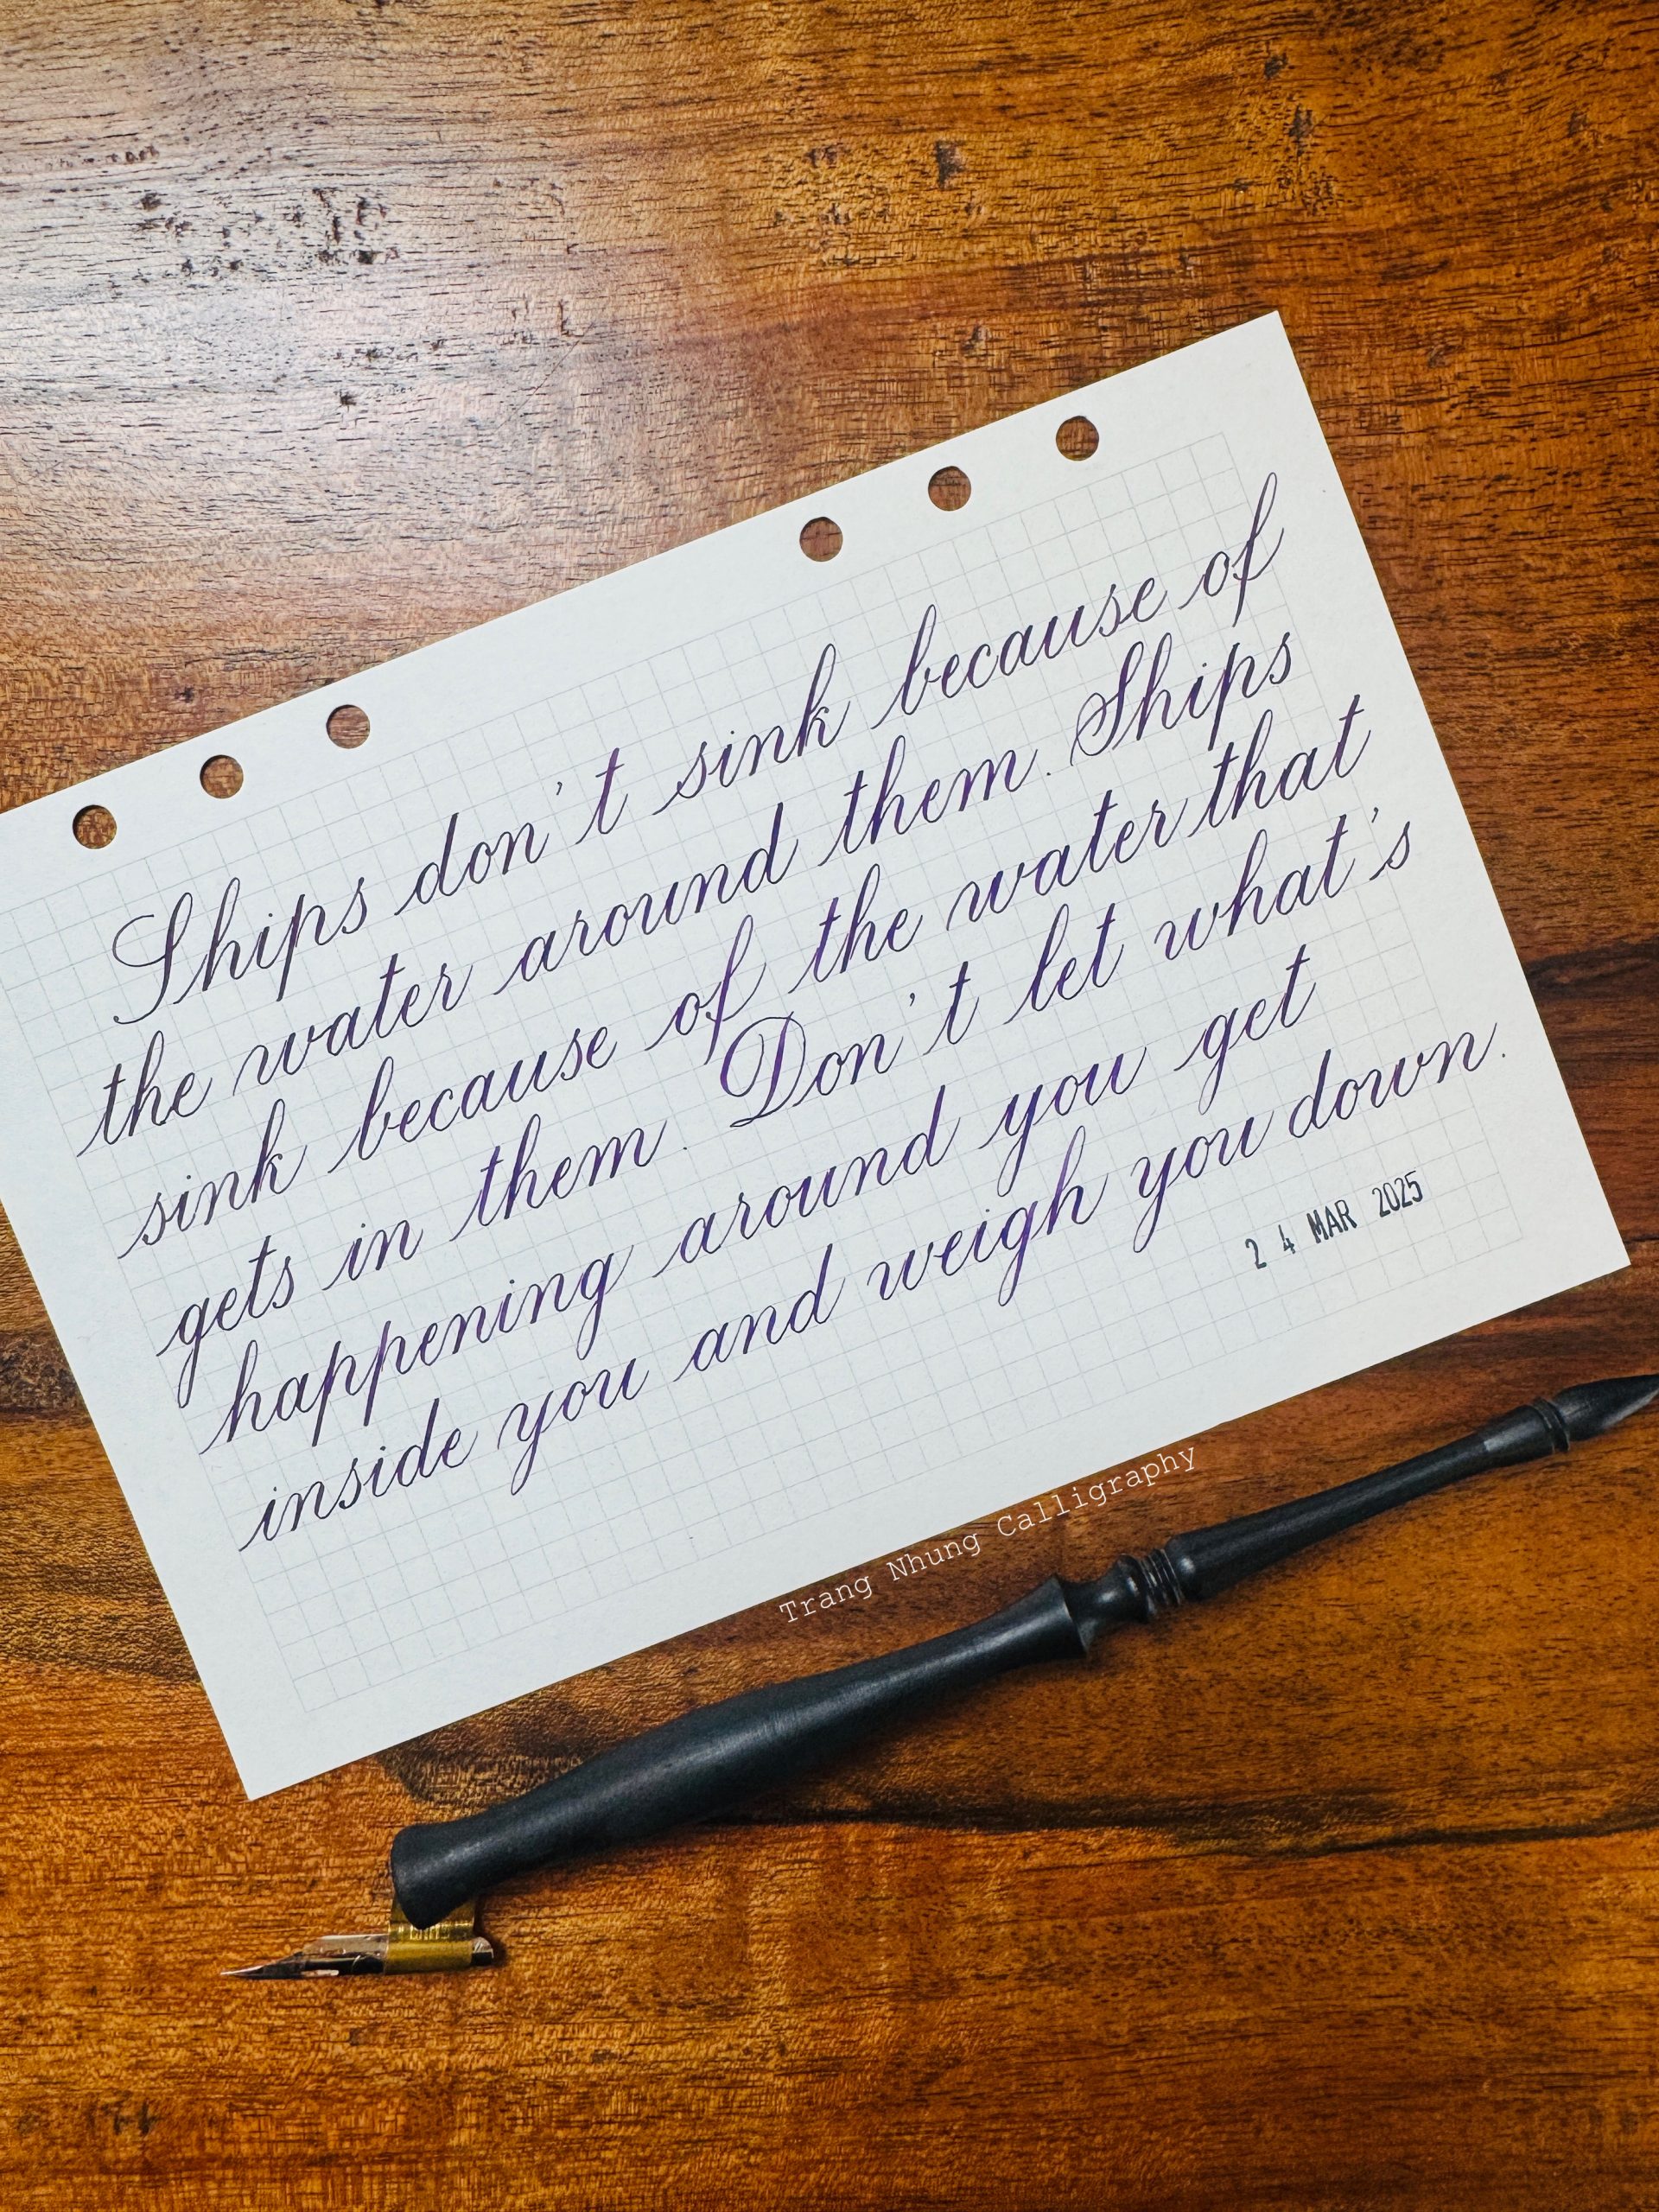 Ships don't sink because of
the water around them. Ships
sink because of the water that
gets in them. Don't let what's
happening around you get
inside you and weigh you down.
24 MAR 2025
Trang Nhung Calligraphy